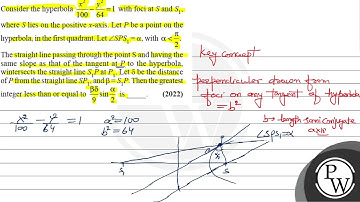 Consider the hyperbola x²/100 − y²/64 = 1 with foci at S and S₁,
where S lies on the positive x-axis. Let P be a point on the
hyperbola, in the first quadrant. Let ∠SPS₁ = α, with α < π/2.
The straight line passing through the point S and having the
same slope as that of the tangent at P to the hyperbola,
wintersects the straight line S₁P at P₁. Let δ be the distance
of P from the straight line SP₁, and β = S₁P. Then the greatest
integer less than or equal to βδ/9 sin α/2 is (2022)
x²/100 − y²/64 = 1 a² = 100
b² = 64
Key Concept
perpendicular drawn from
foci on any tangent of hyperbola
= b²
b → length semi conjugate
axis
∠SPS₁ = α
P
S₁
S
PW